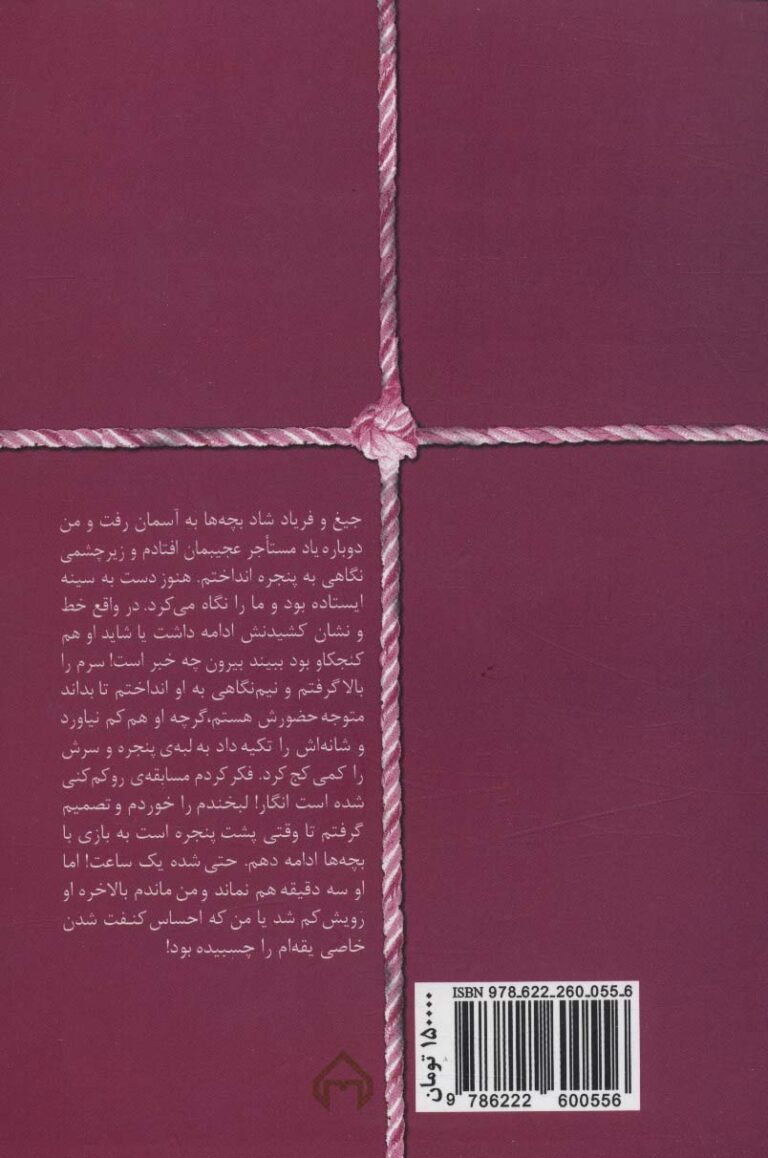 جیغ و فریاد شاد بچه‌ها به آسمان رفت و من
دوباره یاد مستأجر عجیبمان افتادم و زیرچشمی
نگاهی به پنجره انداختم. هنوز دست به سینه
ایستاده بود و ما را نگاه می‌کرد. در واقع خط
و نشان کشیدنش ادامه داشت یا شاید او هم
کنجکاو بود ببیند بیرون چه خبر است! سرم را
بالا گرفتم و نیم‌نگاهی به او انداختم تا بداند
متوجه حضورش هستم، گرچه او هم کم نیاورد
و شانه‌اش را تکیه داد به لبه‌ی پنجره و سرش
را کمی کج کرد. فکر کردم مسابقه‌ی روکم‌کنی
شده است انگار! لبخندم را خوردم و تصمیم
گرفتم تا وقتی پشت پنجره است به بازی با
بچه‌ها ادامه دهم. حتی شده یک ساعت! اما
او سه دقیقه هم نماند و من ماندم بالاخره او
رویش کم شد یا من که احساس کنفت شدن
خاصی یقه‌ام را چسبیده بود!
ISBN 978-622-260-055-6
۱۵۰۰۰۰ تومان
9 786222 600556